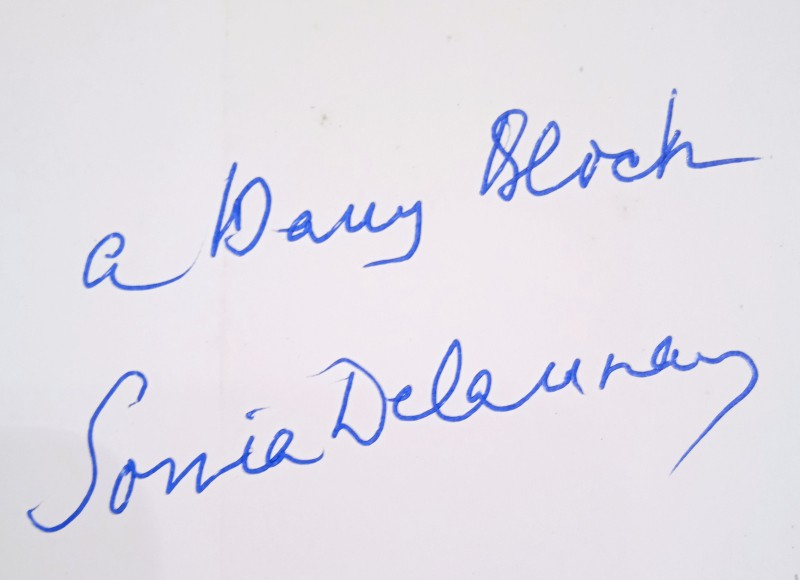 a Dany Bloch
Sonia Delaunay